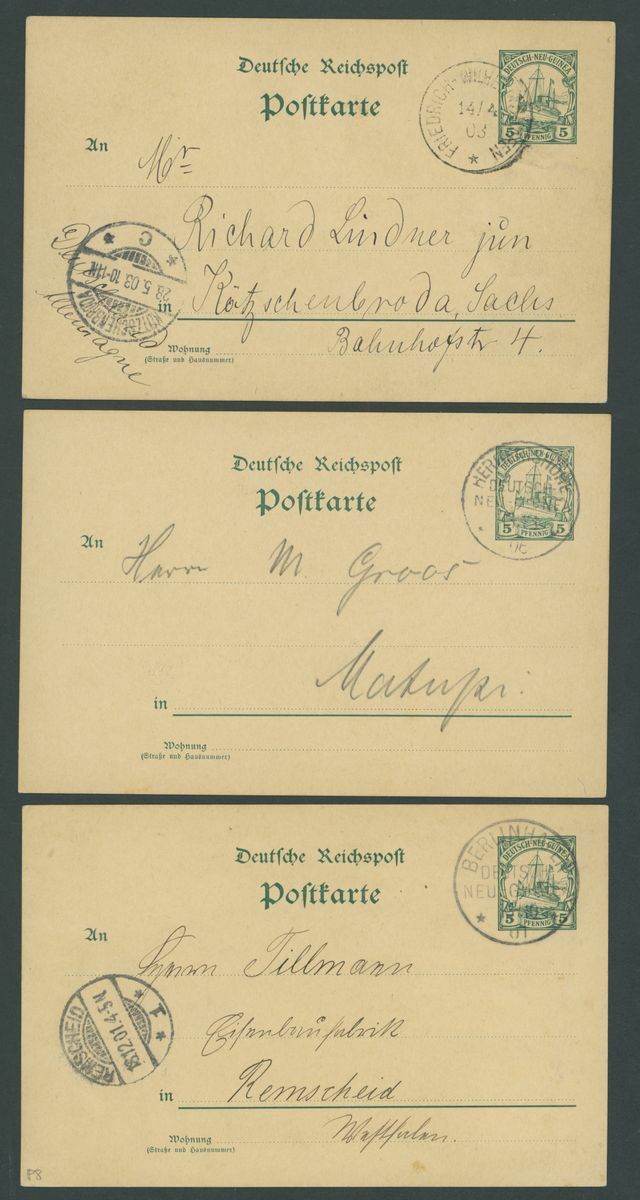 Deutsche Reichspost
Postkarte
DEUTSCH-NEU-GUINEA
5 PFENNIG 5
FRIEDRICH-WILH
HAFEN
14/4
03
An Mr
Richard Lindner jun
in Kötzschenbroda, Sachs
Bahnhofstr 4.
Allemagne
C
28.5.03.10-11V.
Wohnung
(Straße und Hausnummer)
Deutsche Reichspost
Postkarte
DEUTSCH-NEU-GUINEA
5 PFENNIG 5
HERBERTSHÖHE
DEUTSCH-
NEU-GUINEA
06
An Herrn M. Groos
in Matupi.
Wohnung
(Straße und Hausnummer)
Deutsche Reichspost
Postkarte
DEUTSCH-NEU-GUINEA
5 PFENNIG 5
BERLINHAFEN
DEUTSCH
NEU-GUINEA
01
An Herrn Tillmann
Eisenbaufabrik
in Remscheid
Westfalen.
REMSCHEID
18.12.01.4-5N.
1
Wohnung
(Straße und Hausnummer)
P8